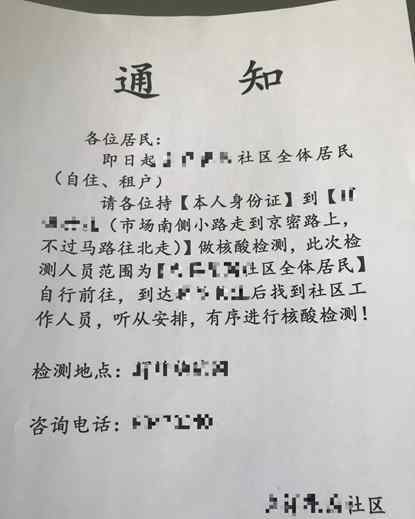 通 知
各位居民：
即日起 社区全体居民
（自住、租户）
请各位持【本人身份证】到【
（市场南侧小路走到京密路上，
不过马路往北走）】做核酸检测，此次检
测人员范围为【 社区全体居民】
自行前往，到达 后找到社区工
作人员，听从安排，有序进行核酸检测！
检测地点：
咨询电话：
社区